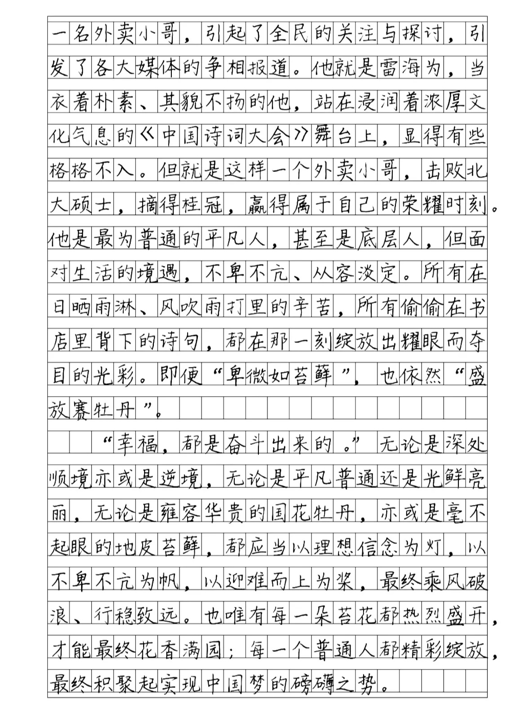 一名外卖小哥，引起了全民的关注与探讨，引
发了各大媒体的争相报道。他就是雷海为，当
衣着朴素、其貌不扬的他，站在浸润着浓厚文
化气息的《中国诗词大会》舞台上，显得有些
格格不入。但就是这样一个外卖小哥，击败北
大硕士，摘得桂冠，赢得属于自己的荣耀时刻。
他是最为普通的平凡人，甚至是底层人，但面
对生活的境遇，不卑不亢、从容淡定。所有在
日晒雨淋、风吹雨打里的辛苦，所有偷偷在书
店里背下的诗句，都在那一刻绽放出耀眼而夺
目的光彩。即便“卑微如苔藓”，也依然“盛
放赛牡丹”。
“幸福，都是奋斗出来的。”无论是深处
顺境亦或是逆境，无论是平凡普通还是光鲜亮
丽，无论是雍容华贵的国花牡丹，亦或是毫不
起眼的地皮苔藓，都应当以理想信念为灯，以
不卑不亢为帆，以迎难而上为桨，最终乘风破
浪、行稳致远。也唯有每一朵苔花都热烈盛开，
才能最终花香满园；每一个普通人都精彩绽放，
最终积聚起实现中国梦的磅礴之势。